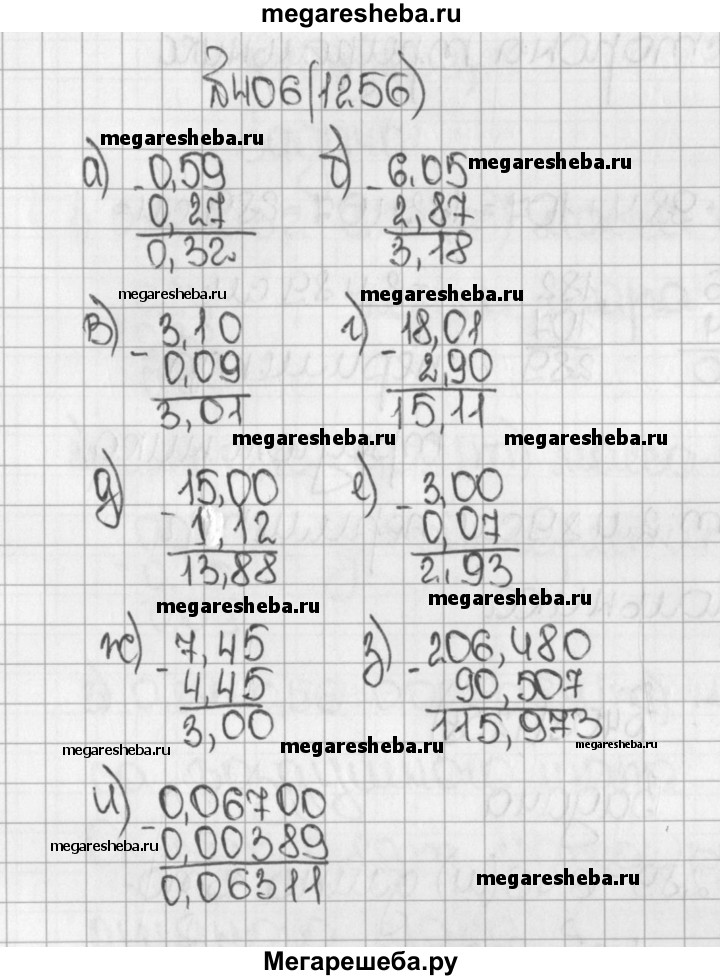 megaresheba.ru
№406(1256)
megaresheba.ru
а) - 0,59 б) - 6,05 megaresheba.ru
0,27 2,87
0,32 3,18
megaresheba.ru megaresheba.ru
в) - 3,10 г) - 18,01
0,09 2,90
3,01 15,11
megaresheba.ru megaresheba.ru
д) - 15,00 е) - 3,00
1,12 0,07
13,88 2,93
megaresheba.ru megaresheba.ru
ж) - 7,45 з) - 206,480
4,45 90,507
3,00 115,973
megaresheba.ru megaresheba.ru megaresheba.ru
и) - 0,06700
megaresheba.ru 0,00389
0,06311 megaresheba.ru
Мегарешеба.ру